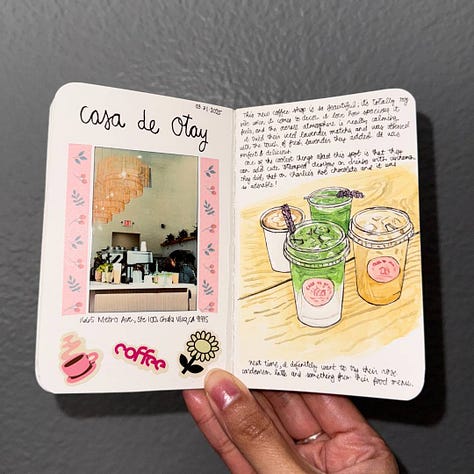 03.21.2025
casa de Otay
1665 Metro Ave, Ste 100, Chula Vista, CA
coffee
This new coffee shop is so beautiful; it's totally my
vibe when it comes to decor. I love how spacious it
feels, and the overall atmosphere is really calming.
I tried their iced lavender matcha and was obsessed
with the touch of fresh lavender they added. It was
perfect & delicious.
One of the coolest things about this spot is that they
can add cute stamped designs on drinks with cinnamon.
They did that on Charlie's hot chocolate and it was
so adorable!
next time, I definitely want to try their rose
cardamom latte and something from their food menu.